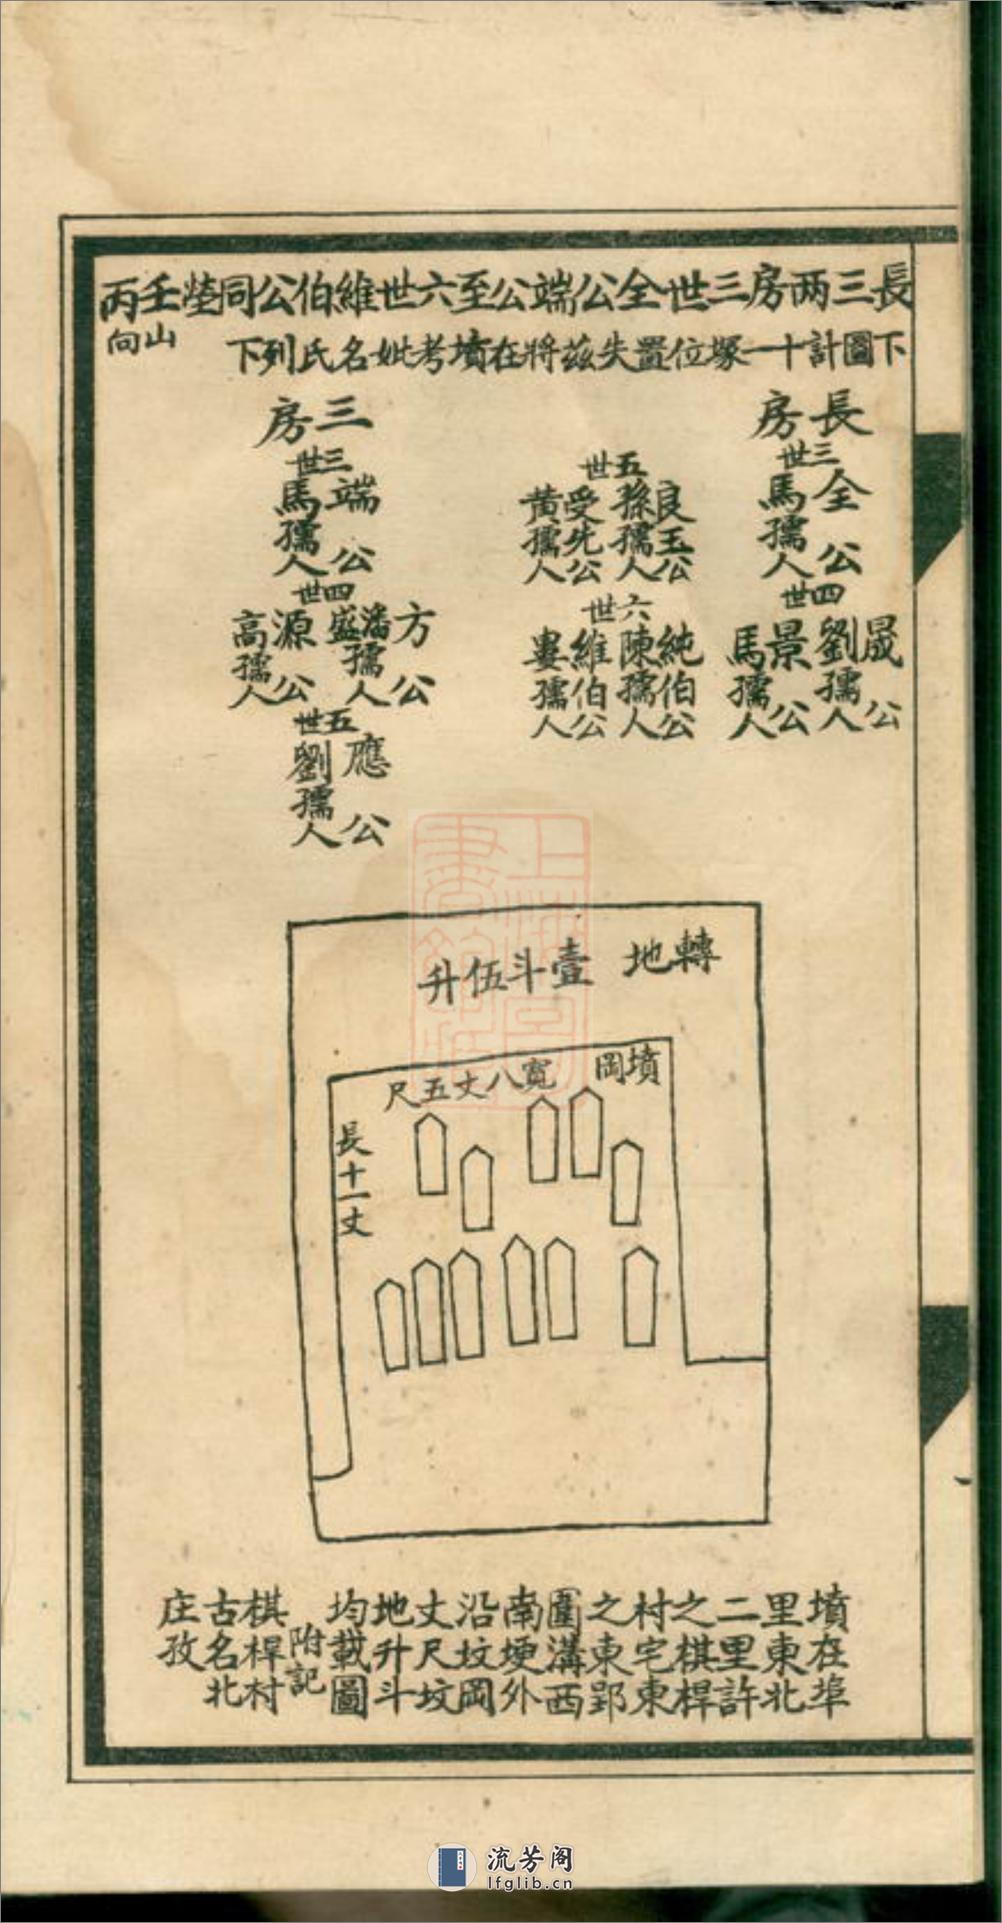 長三兩房三世全公端公至六世維伯公同塋壬山丙向
下圖計十一塚位置失茲將在墳考妣名氏列下
長房
三世
全公
馬孺人
四世
晟公
劉孺人
景公
馬孺人
五世
良玉公
孫孺人
受先公
黃孺人
六世
純伯公
陳孺人
維伯公
婁孺人
三房
三世
端公
馬孺人
四世
方公
潘盛孺人
源公
高孺人
五世
應公
劉孺人
轉地
壹斗伍升
墳岡
寬八丈五尺
長十一丈
墳在埠
里東北
二里許
之棋桿
村宅東
之東郢
圍溝西
南埂外
沿坟岡
丈尺坟
地升斗
均載圖
附記
棋桿村
古名北
庄孜
上海圖書館藏
流芳阁
lfglib.cn